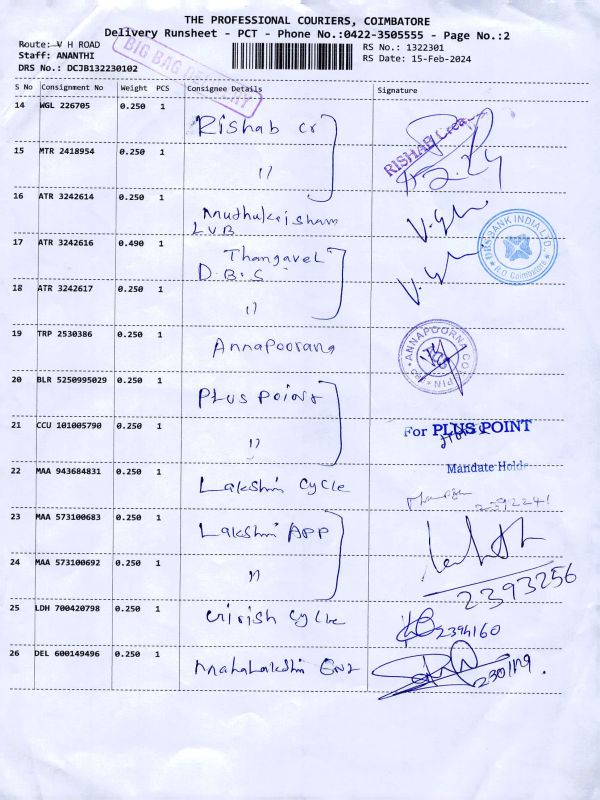 THE PROFESSIONAL COURIERS, COIMBATORE
Delivery Runsheet - PCT - Phone No.:0422-3505555 - Page No.:2
Route: V H ROAD
Staff: ANANTHI
DRS No.: DCJB132230102
RS No.: 1322301
RS Date: 15-Feb-2024
BIG BAG DELIVERY
S No Consignment No Weight PCS Consignee Details Signature
14 WGL 226705 0.250 1 Rishab cr
RISHAB Crea
15 MTR 2418954 0.250 1 11
16 ATR 3242614 0.250 1 Muthukrishnan
LVB
17 ATR 3242616 0.490 1 Thangavel
D.B.S
DBS BANK INDIA LTD.
R.O. Coimbatore
18 ATR 3242617 0.250 1 11
19 TRP 2530386 0.250 1 Annapoorana
ANNAPOORNA CO
20 BLR 5250995029 0.250 1 PLUS POINT
21 CCU 101005790 0.250 1 11
For PLUS POINT
Mandate Holde
22 MAA 943684831 0.250 1 Lakshmi Cycle
23 MAA 573100683 0.250 1 Lakshmi APP
24 MAA 573100692 0.250 1 11
2393256
25 LDH 700420798 0.250 1 Girish Cycle
2394160
26 DEL 600149496 0.250 1 Mahalakshmi Ent